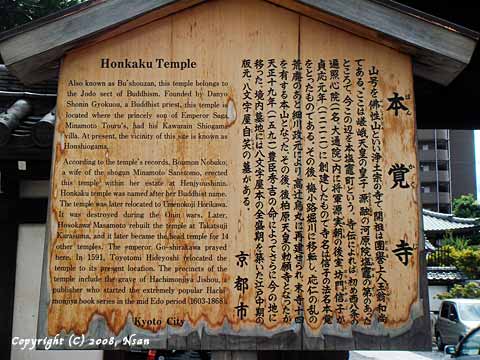 Honkaku Temple
Also known as Bu'shouzan, this temple belongs
to the Jodo sect of Buddhism. Founded by Danyo
Shonin Gyokuou, a Buddhist priest, this temple is
located where the princely son of Emperor Saga
Minamoto Touru's, had his Kawarain Shiogama
villa. At present, the vicinity of this site is known as
Honshiogama.
According to the temple's records, Boumon Nobuko,
a wife of the shogun Minamoto Sanetomo, erected
this temple within her estate at Henjyoushinin.
Honkaku temple was named after her Buddhist name.
The temple was later relocated to Umenokouji Horikawa.
It was destroyed during the Onin wars. Later,
Hosokawa Masamoto rebuilt the temple at Takatsuji
Karasuma, and it later became the head temple for 14
other temples. The emperor Go-shirakawa prayed
here. In 1591, Toyotomi Hideyoshi relocated the
temple to its present location. The precincts of the
temple include the grave of Hachimonjiya Jishou, a
publisher who started the extremely popular Hachi-
monjiya book series in the mid Edo period (1603-1868).
Kyoto City
本覚寺
ほんがくじ
山号を佛性山という浄土宗の寺で、開祖団譽上人玉翁和尚
である。ここは嵯峨天皇の皇子・源融の河原院塩竈の第のあった
ところで、今もこの辺を本塩竈町という。寺伝によれば、初め西八条の
遍照心院(一名、大通院)に右将軍源実朝の後室・坊門信子が
貞応元年(一二二二)に創建したもので寺名は信子の法名本覚
をとったものである。その後、梅小路堀川に移転し、応仁の乱の
荒廃のあと細川政元により、高辻烏丸に再建せられ、末寺十四
を有する本山となった。その後、後柏原天皇の勅願寺となったが
天正十九年(一五九一)豊臣秀吉の命によってさらに今の地に
移った。境内墓地には八文字屋本の全盛期を築いた江戸中期の
版元、八文字屋自笑の墓がある。
京都市
Copyright (C) 2008, Nsan